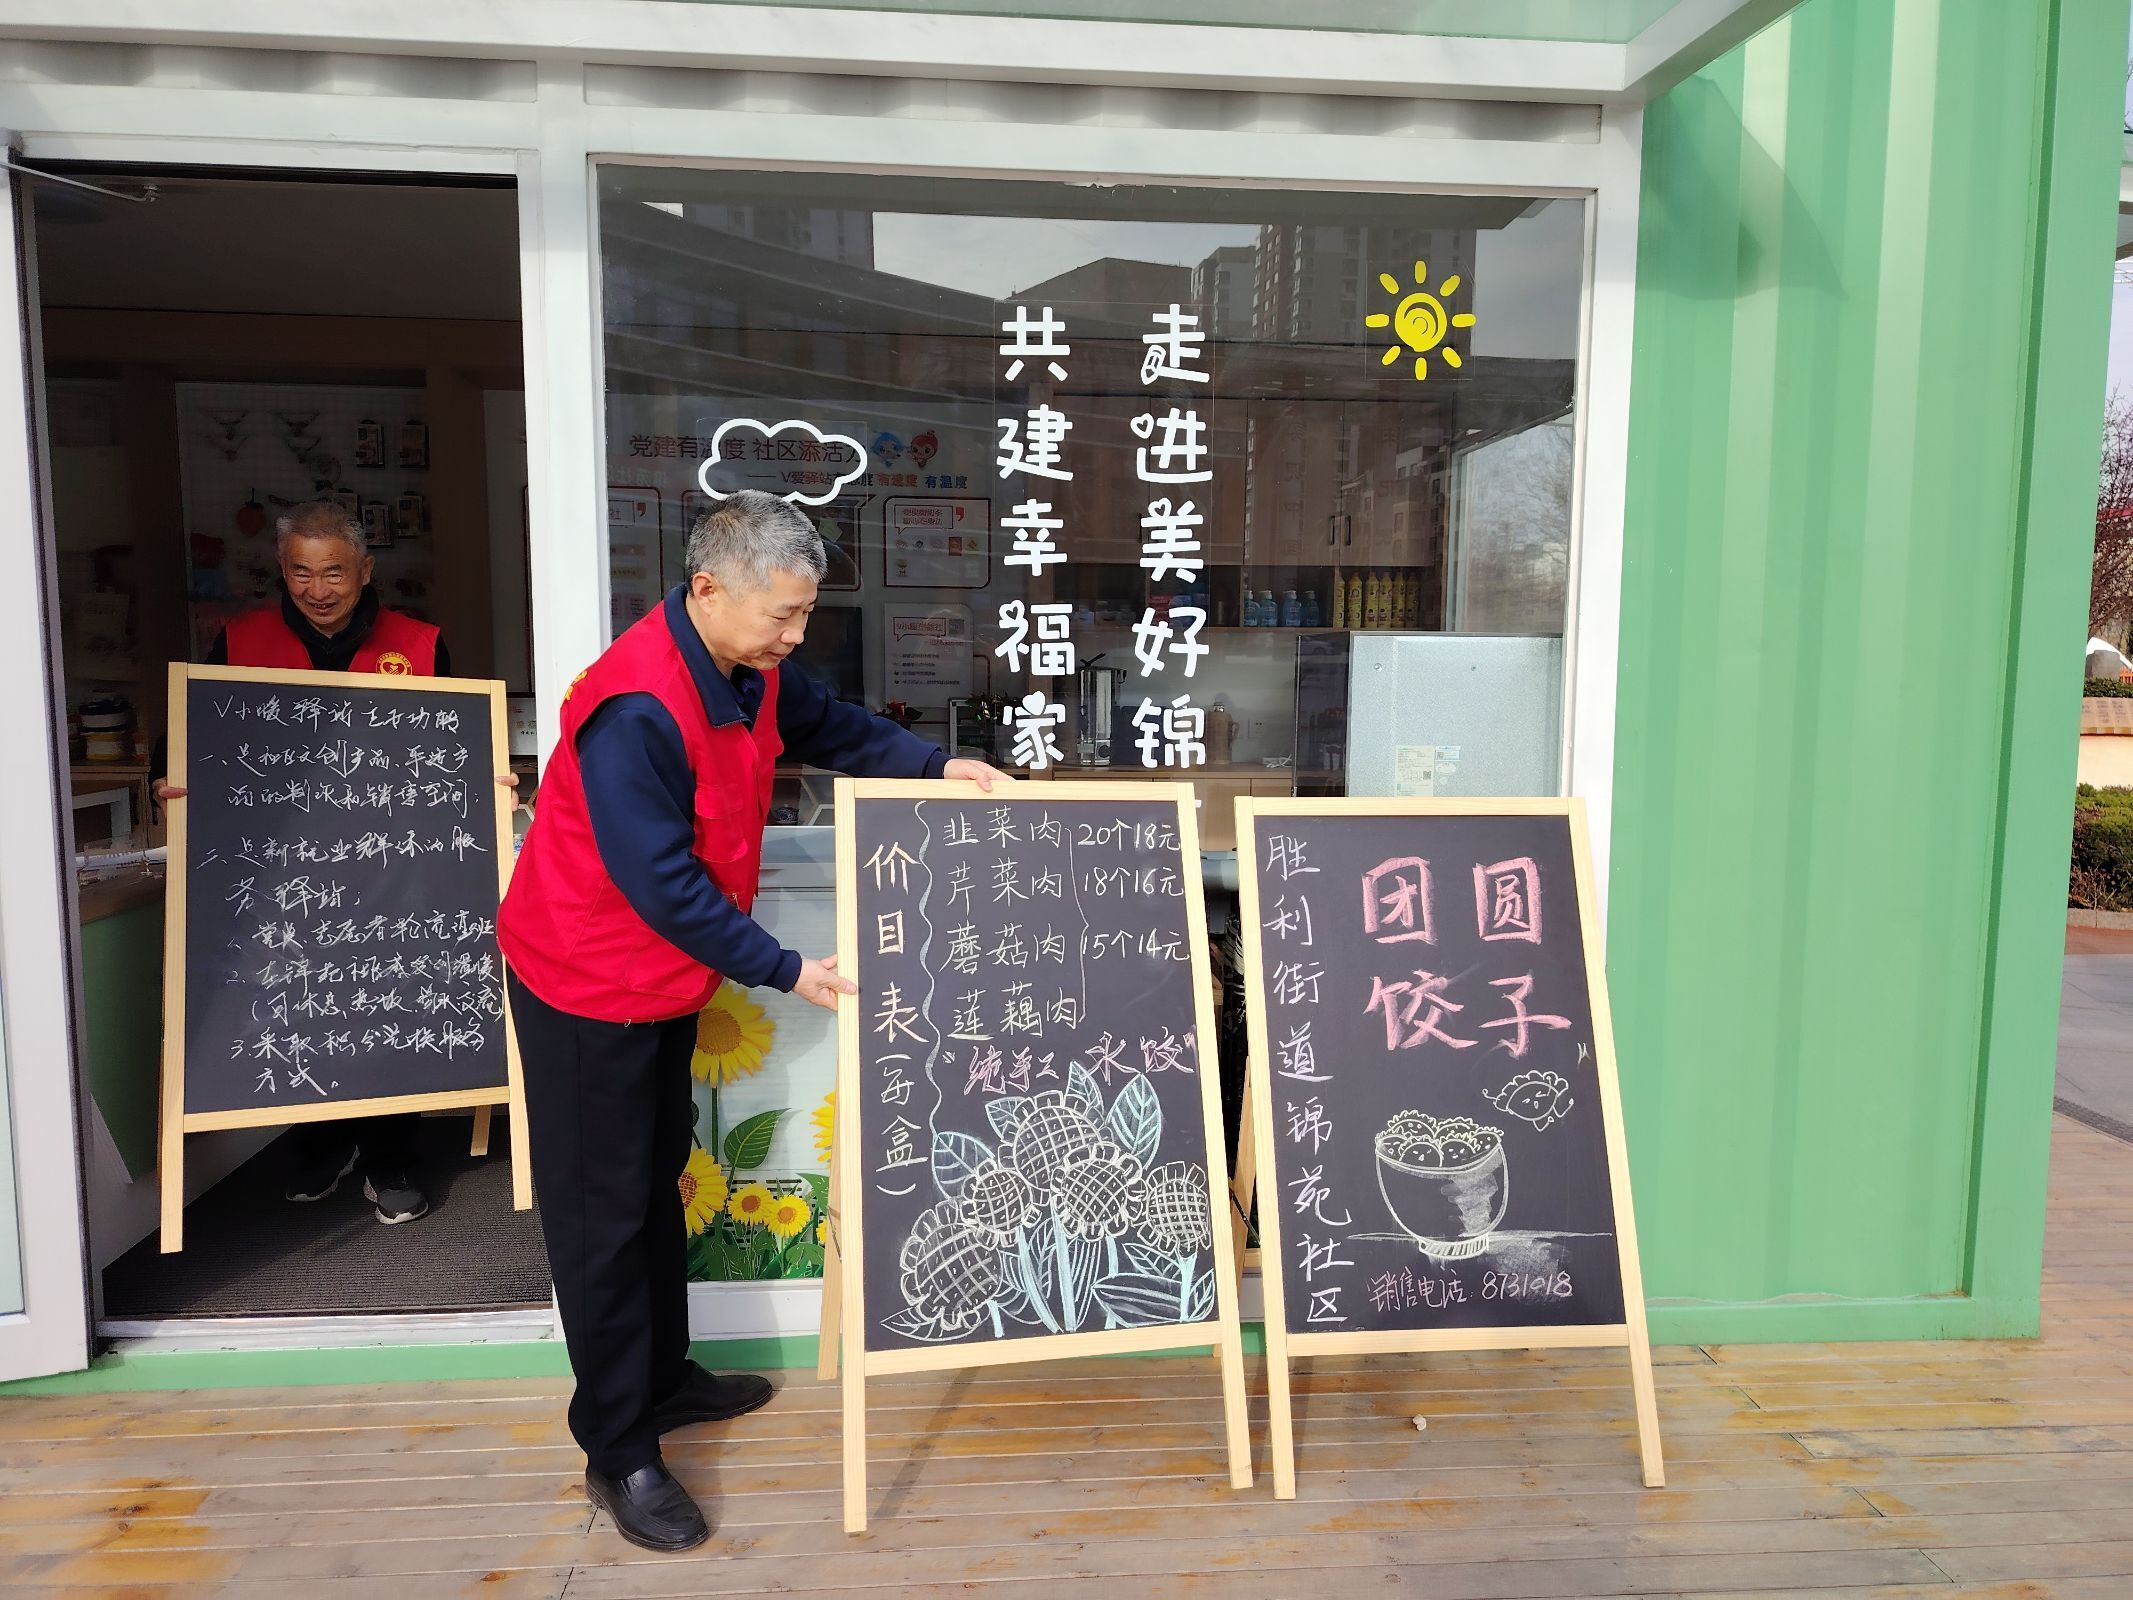 走进美好锦
共建幸福家
党建有温度 社区添活
有速度 有温度
V小暖驿站主要功能
一、是社区文创产品、手造产
品的制作和销售空间；
二、是新就业群体的服
务驿站；
党员、志愿者轮流值班
2.
3.采取积分兑换服务
方式。
价目表(每盒)
韭菜肉 20个18元
芹菜肉 18个16元
蘑菇肉 15个14元
莲藕肉
"纯手工 水饺"
胜利街道锦苑社区
团圆
饺子
销售电话:8731018